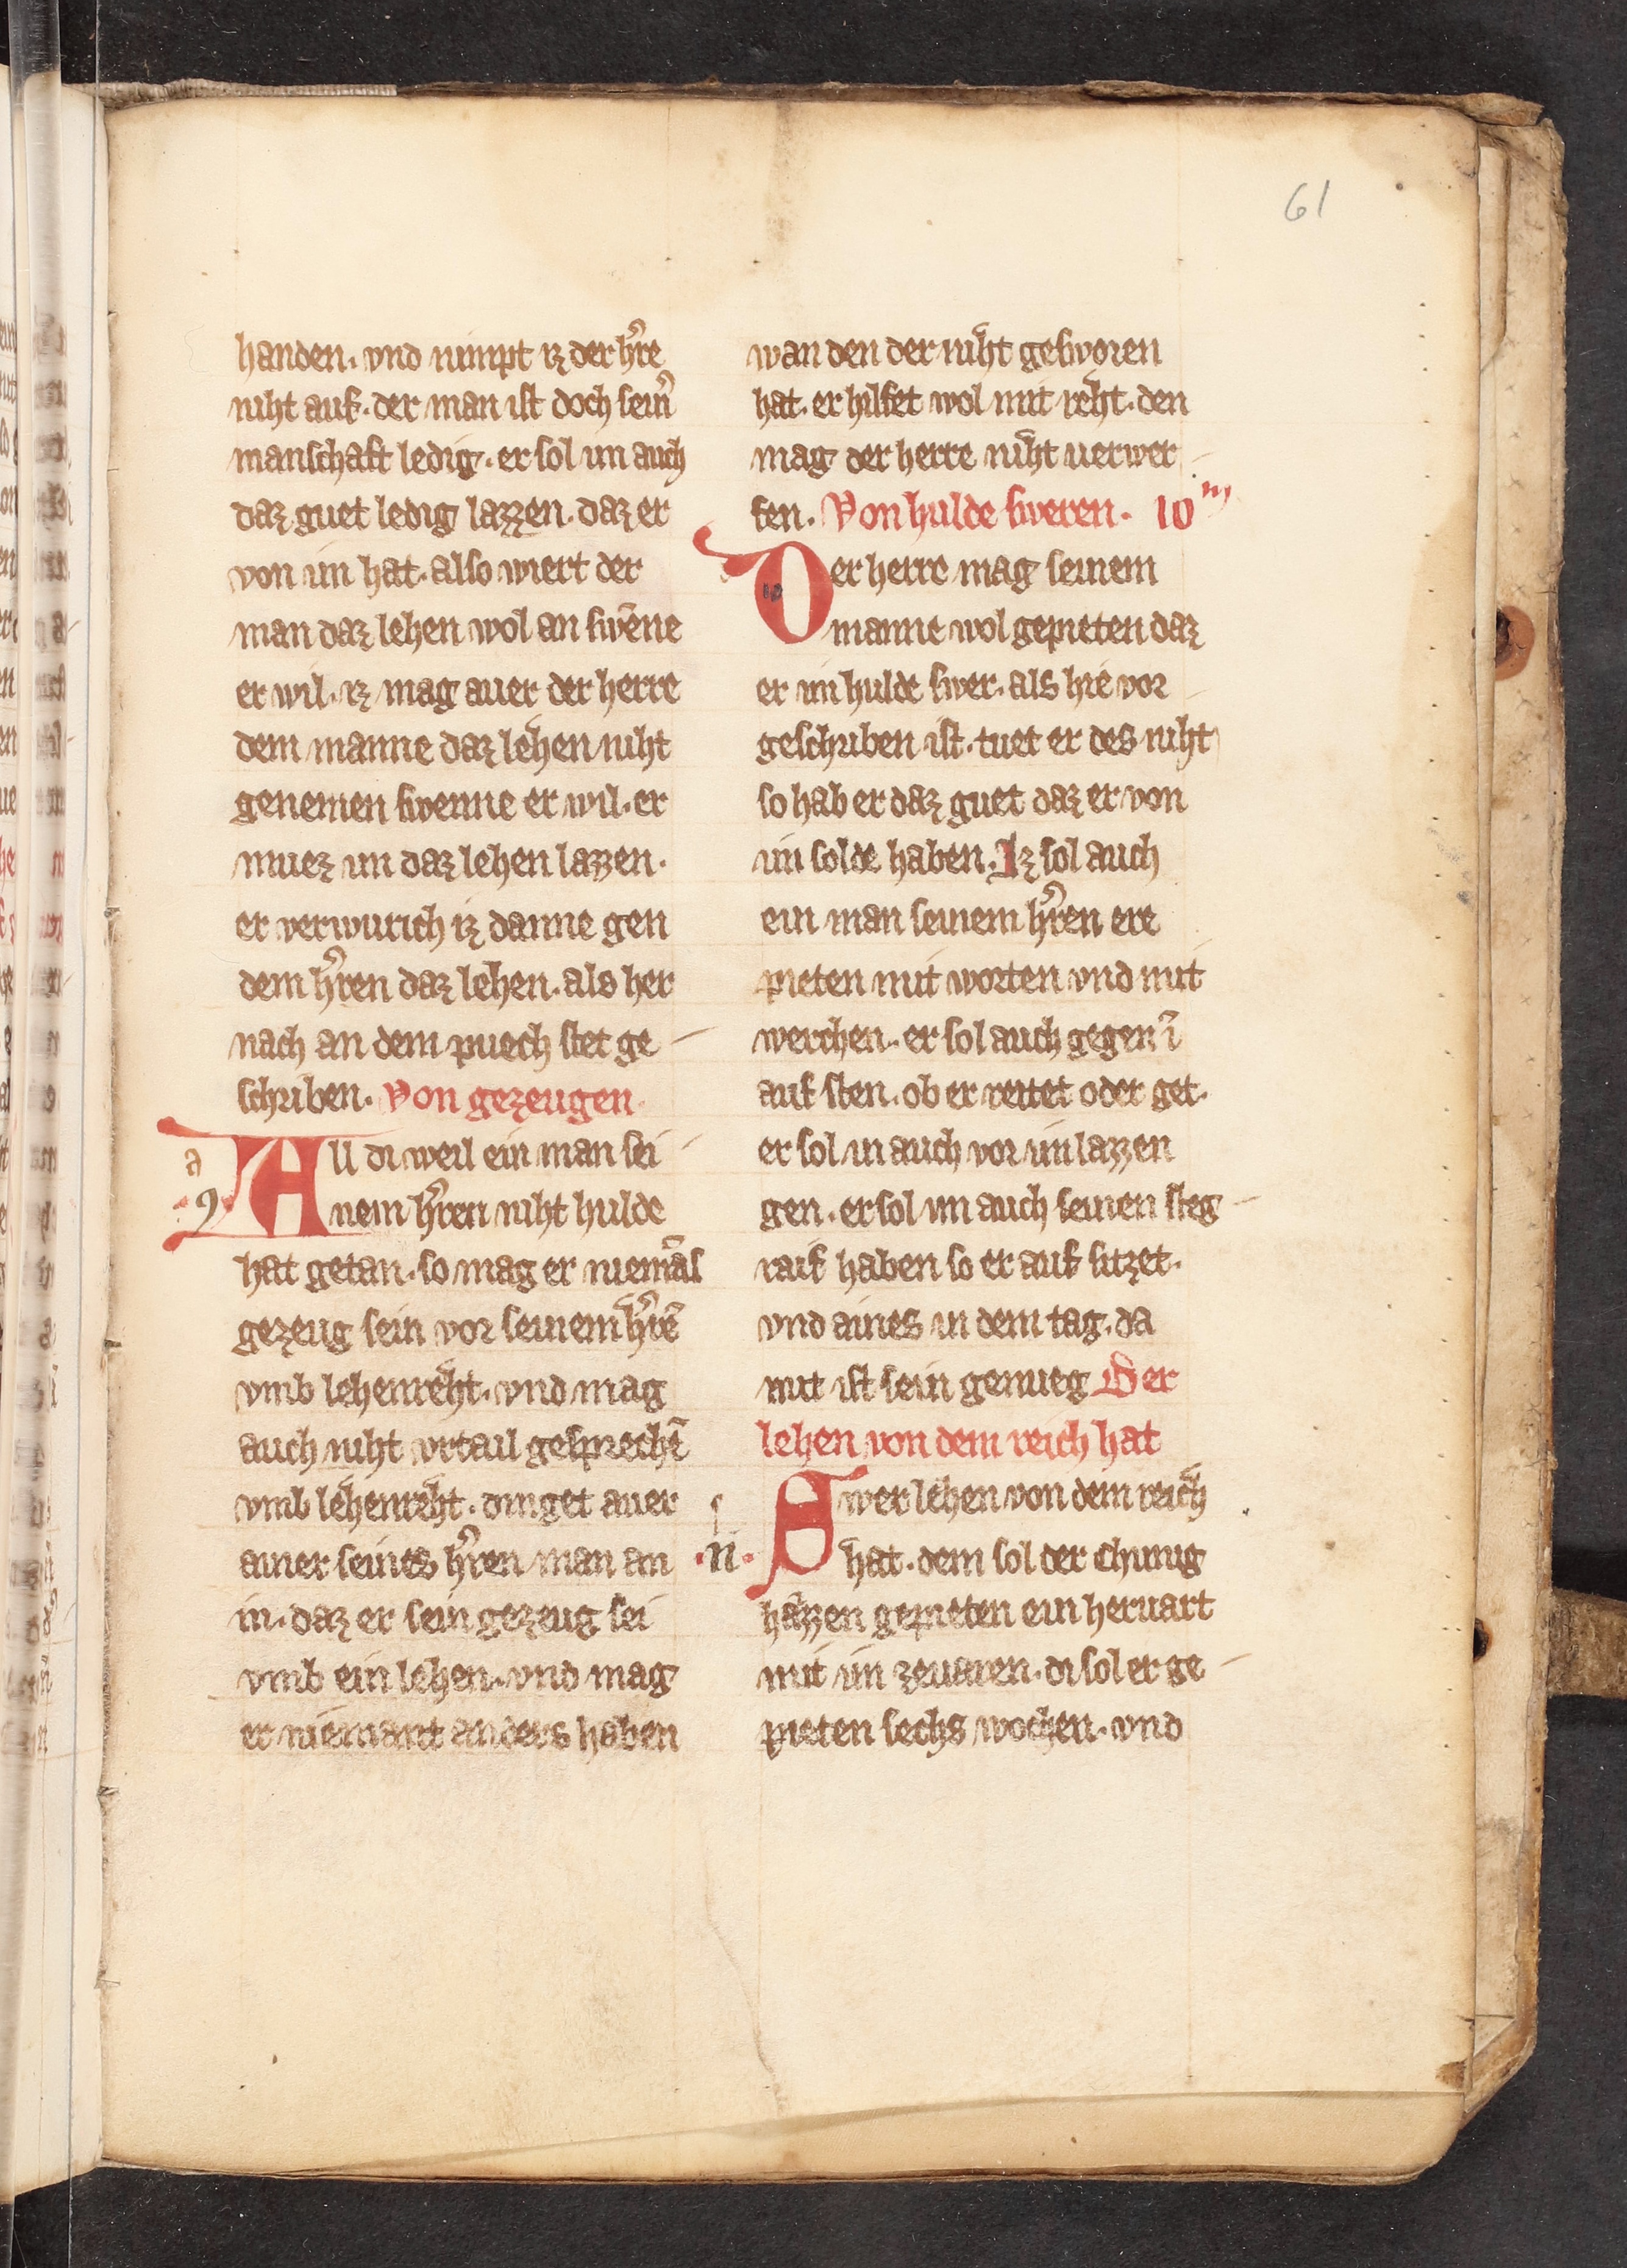 61
handen. vnd nimpt iz der hr̄e
niht auf. der man ist doch sein̄
manschaft ledig. er sol im auch
daz guet ledig lazzen. daz er
von im hat. also wiert der
man daz lehen wol an swēne
er wil. iz mag auer der herre
dem manne daz lehen niht
genemen swenne er wil. er
muez im daz lehen lazzen.
er verwurich iz danne gen
dem hr̄ren daz lehen. als her
nach an dem puech stet ge
schriben. Von gezeugen.
a
All di weil ein man sei
.9.
nem hr̄ren niht hulde
hat getan. so mag er niem̄als
gezeug sein vor seinem hr̄rē
vmb lehenreht. vnd mag
auch niht vrtail gesprechē
vmb lehenreht. dinget auer
ainer seines hr̄ren man an
in. daz er sein gezeug sei
vmb ein lehen. vnd mag
er niemant anders haben
wan den der niht gesworen
hat. er hilfet wol mit reht. den
mag der herre niht uerwer
fen. Von hulde sweren. 10m
10
Der herre mag seinem
manne wol gepieten daz
er im hulde swer. als hie vor
geschriben ist. tuet er des niht
so hab er daz guet daz er von
im solde haben. Iz sol auch
ein man seinem hr̄ren ere
pieten mit worten vnd mit
werchen. er sol auch gegen ī
auf sten. ob er reitet oder get.
er sol in auch vor im lazzen
gen. er sol im auch seinen steg
raif haben so er auf sitzet.
vnd aines in dem tag. da
mit ist sein genueg Der
lehen von dem reich hat
Swer lehen von dem reich
.11.
hat. dem sol der chunig
haizzen gepieten ein heruart
mit im zeuaren. di sol er ge
pieten sechs wochen. vnd